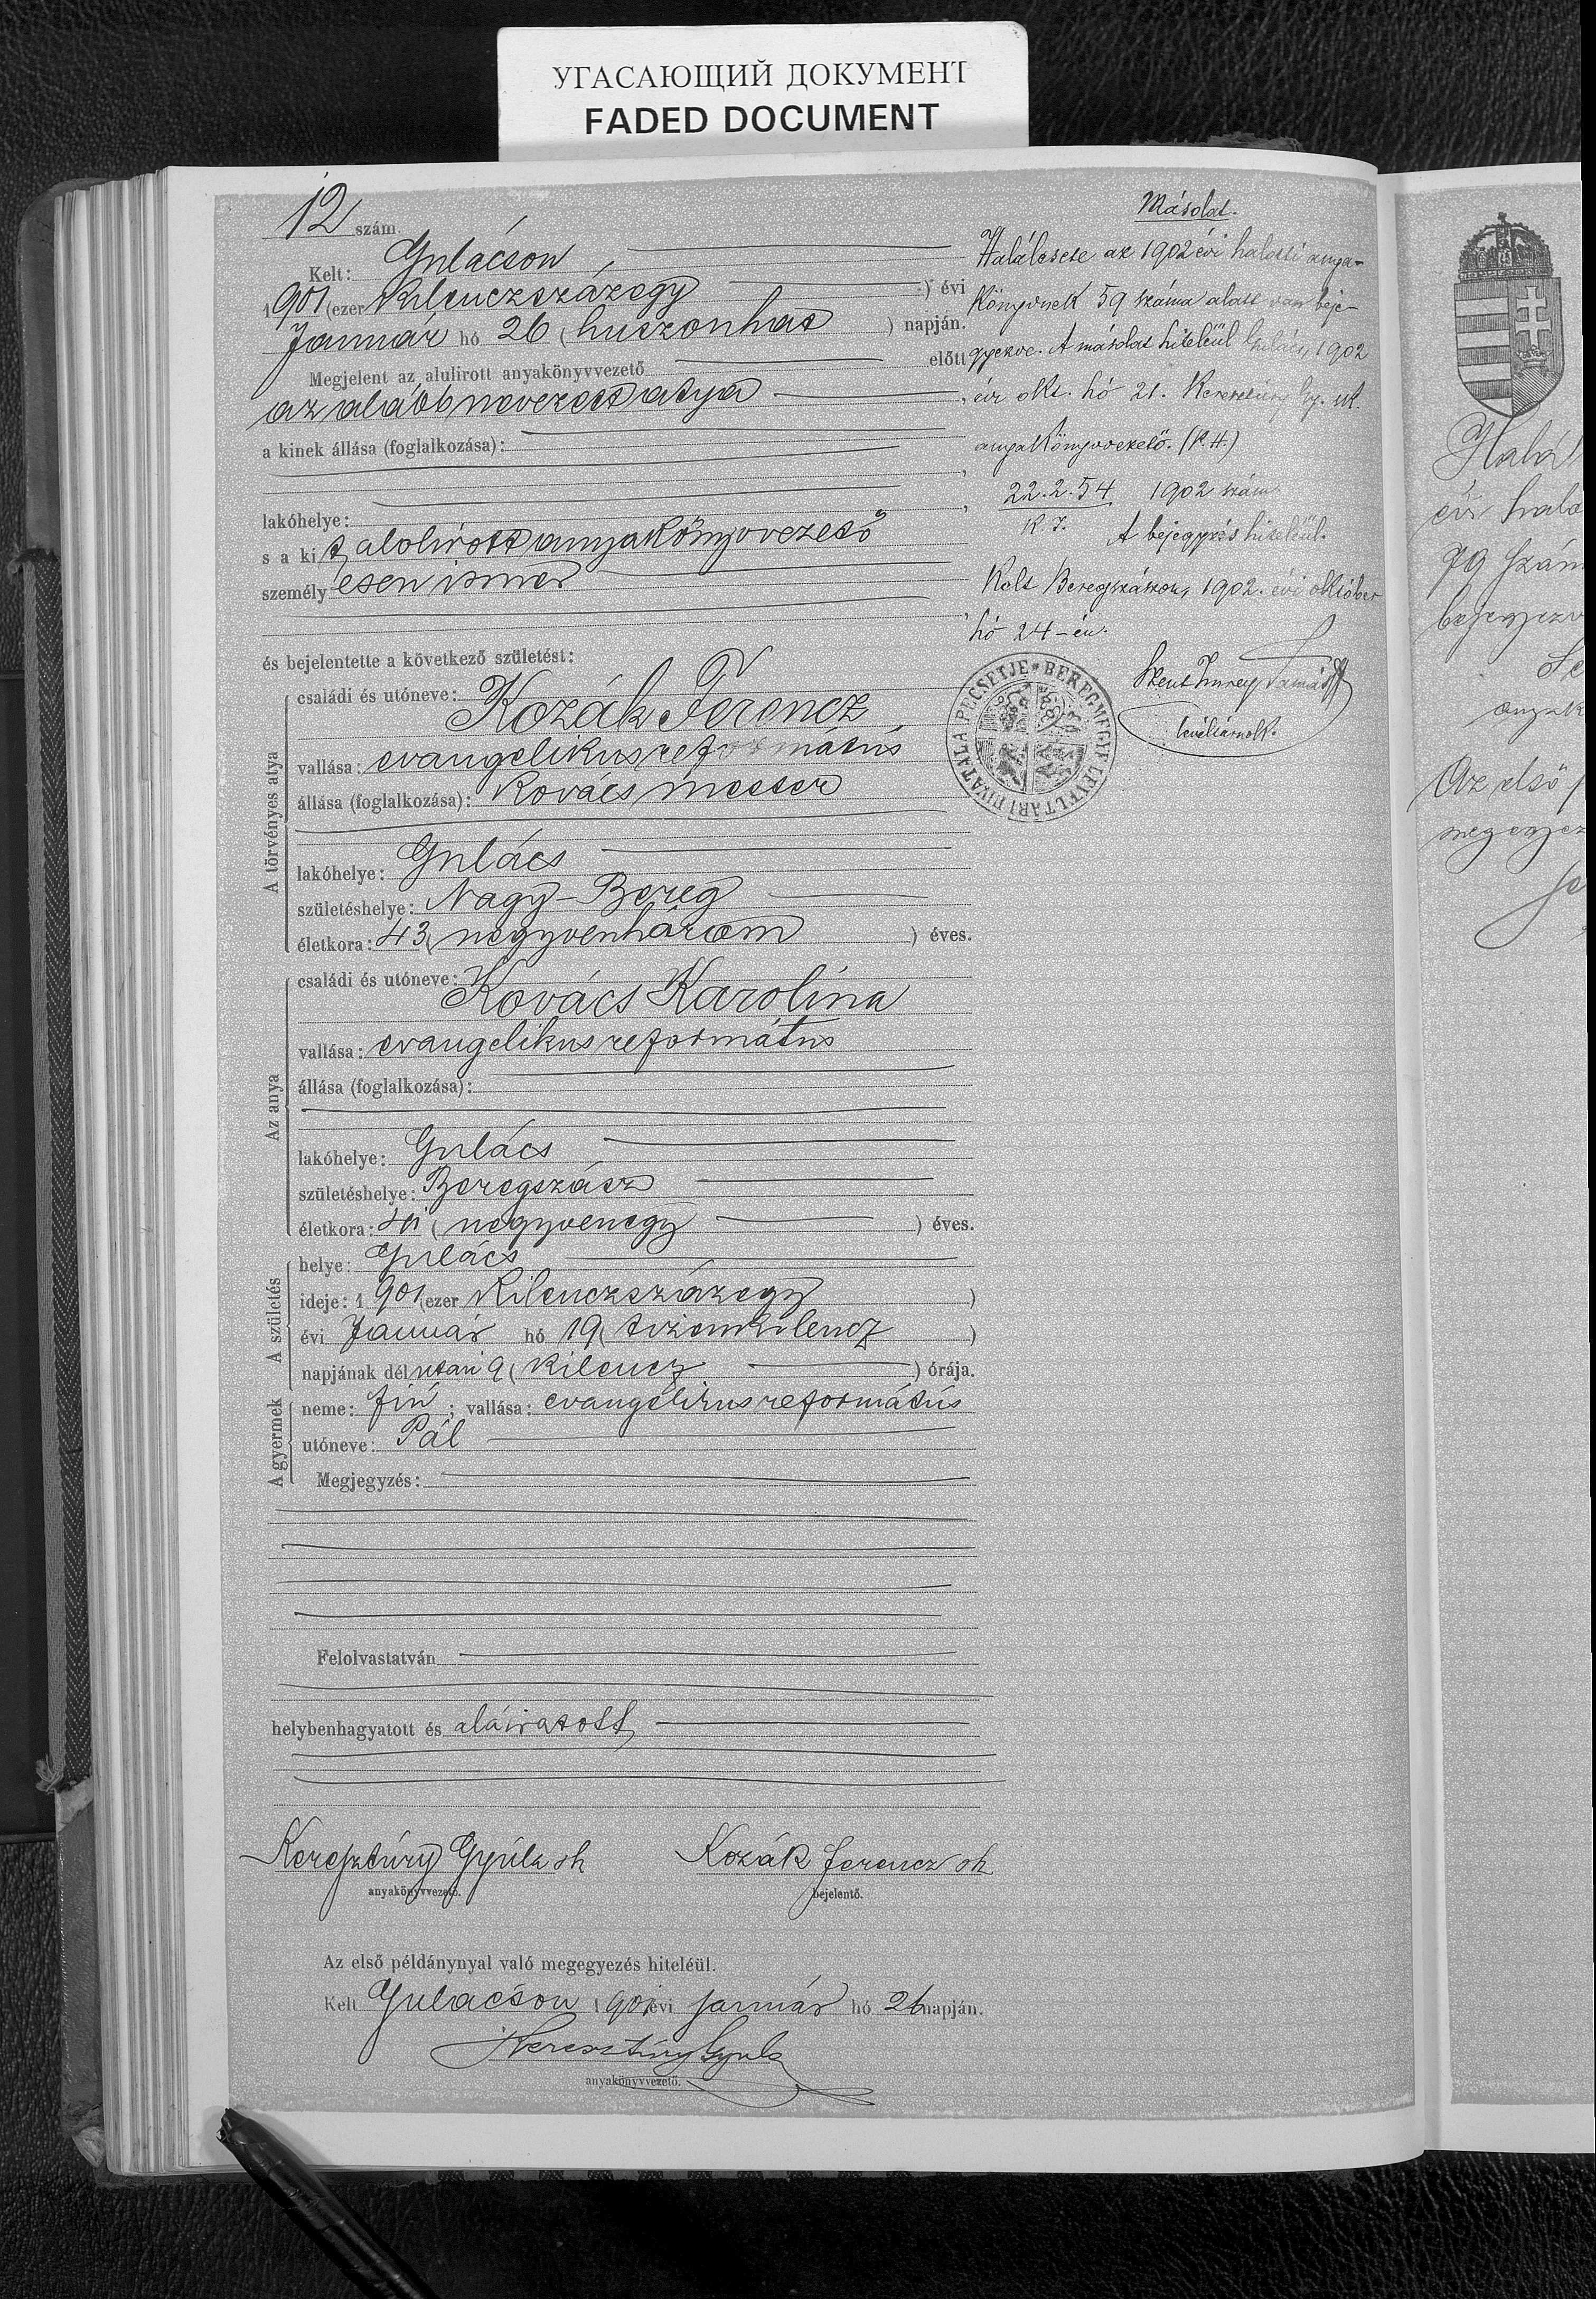 УГАСАЮЩИЙ ДОКУМЕНТ
FADED DOCUMENT
12 szám.
Kelt: Gulácson,
1901 (ezer kilenczszázegy ) évi
Január hó 26 (huszonhat ) napján.
Megjelent az alulirott anyakönyvvezető előtt
az alább nevezett atya ,
a kinek állása (foglalkozása):
,
lakóhelye: ,
s a kit alolirott anyakönyvvezető
személyesen ismer
,
és bejelentette a következő születést:
A törvényes atya
családi és utóneve: Kozák Ferencz
vallása: evangelikus református
állása (foglalkozása): kovács mester
lakóhelye: Gulács
születéshelye: Nagy-Bereg
életkora: 43 (negyvenhárom ) éves.
Az anya
családi és utóneve: Kovács Karolina
vallása: evangelikus református
állása (foglalkozása):
lakóhelye: Gulács
születéshelye: Beregszász
életkora: 41 (negyvenegy ) éves.
A születés
helye: Gulács
ideje: 1901 (ezer kilenczszázegy )
évi Január hó 19 (tizenkilencz )
napjának délutan 9 (kilencz ) órája.
A gyermek
neme: fiú ; vallása: evangélikus református
utóneve: Pál
Megjegyzés:
Felolvastatván
helybenhagyatott és aláiratott
Keresztúry Gyula sk
anyakönyvvezető.
Kozák Ferencz sk
bejelentő.
Az első példánynyal való megegyezés hiteléül.
Kelt Gulácson 1901 évi január hó 26 napján.
Keresztúry Gyula
anyakönyvvezető.
Másolat.
Halálesete az 1902 évi halotti anya-
könyvnek 59 száma alatt van beje-
gyezve. A másolat hiteléül Gulács, 1902
évi okt. hó 21. Keresztúry Gy. sk.
anyakönyvvezető. (P.H.)
22.2.54 1902 szám
K. I. A bejegyzés hiteléül.
Kelt Beregszászon, 1902. évi október
hó 24-én.
Szent Imrey Tamás
levéltárnok.
BEREGMEGYE LEVÉLTÁRI HIVATALA PECSÉTJE
Halál
évi halo
79 szám
bejegyezv
anyak
Az első p
megegyez